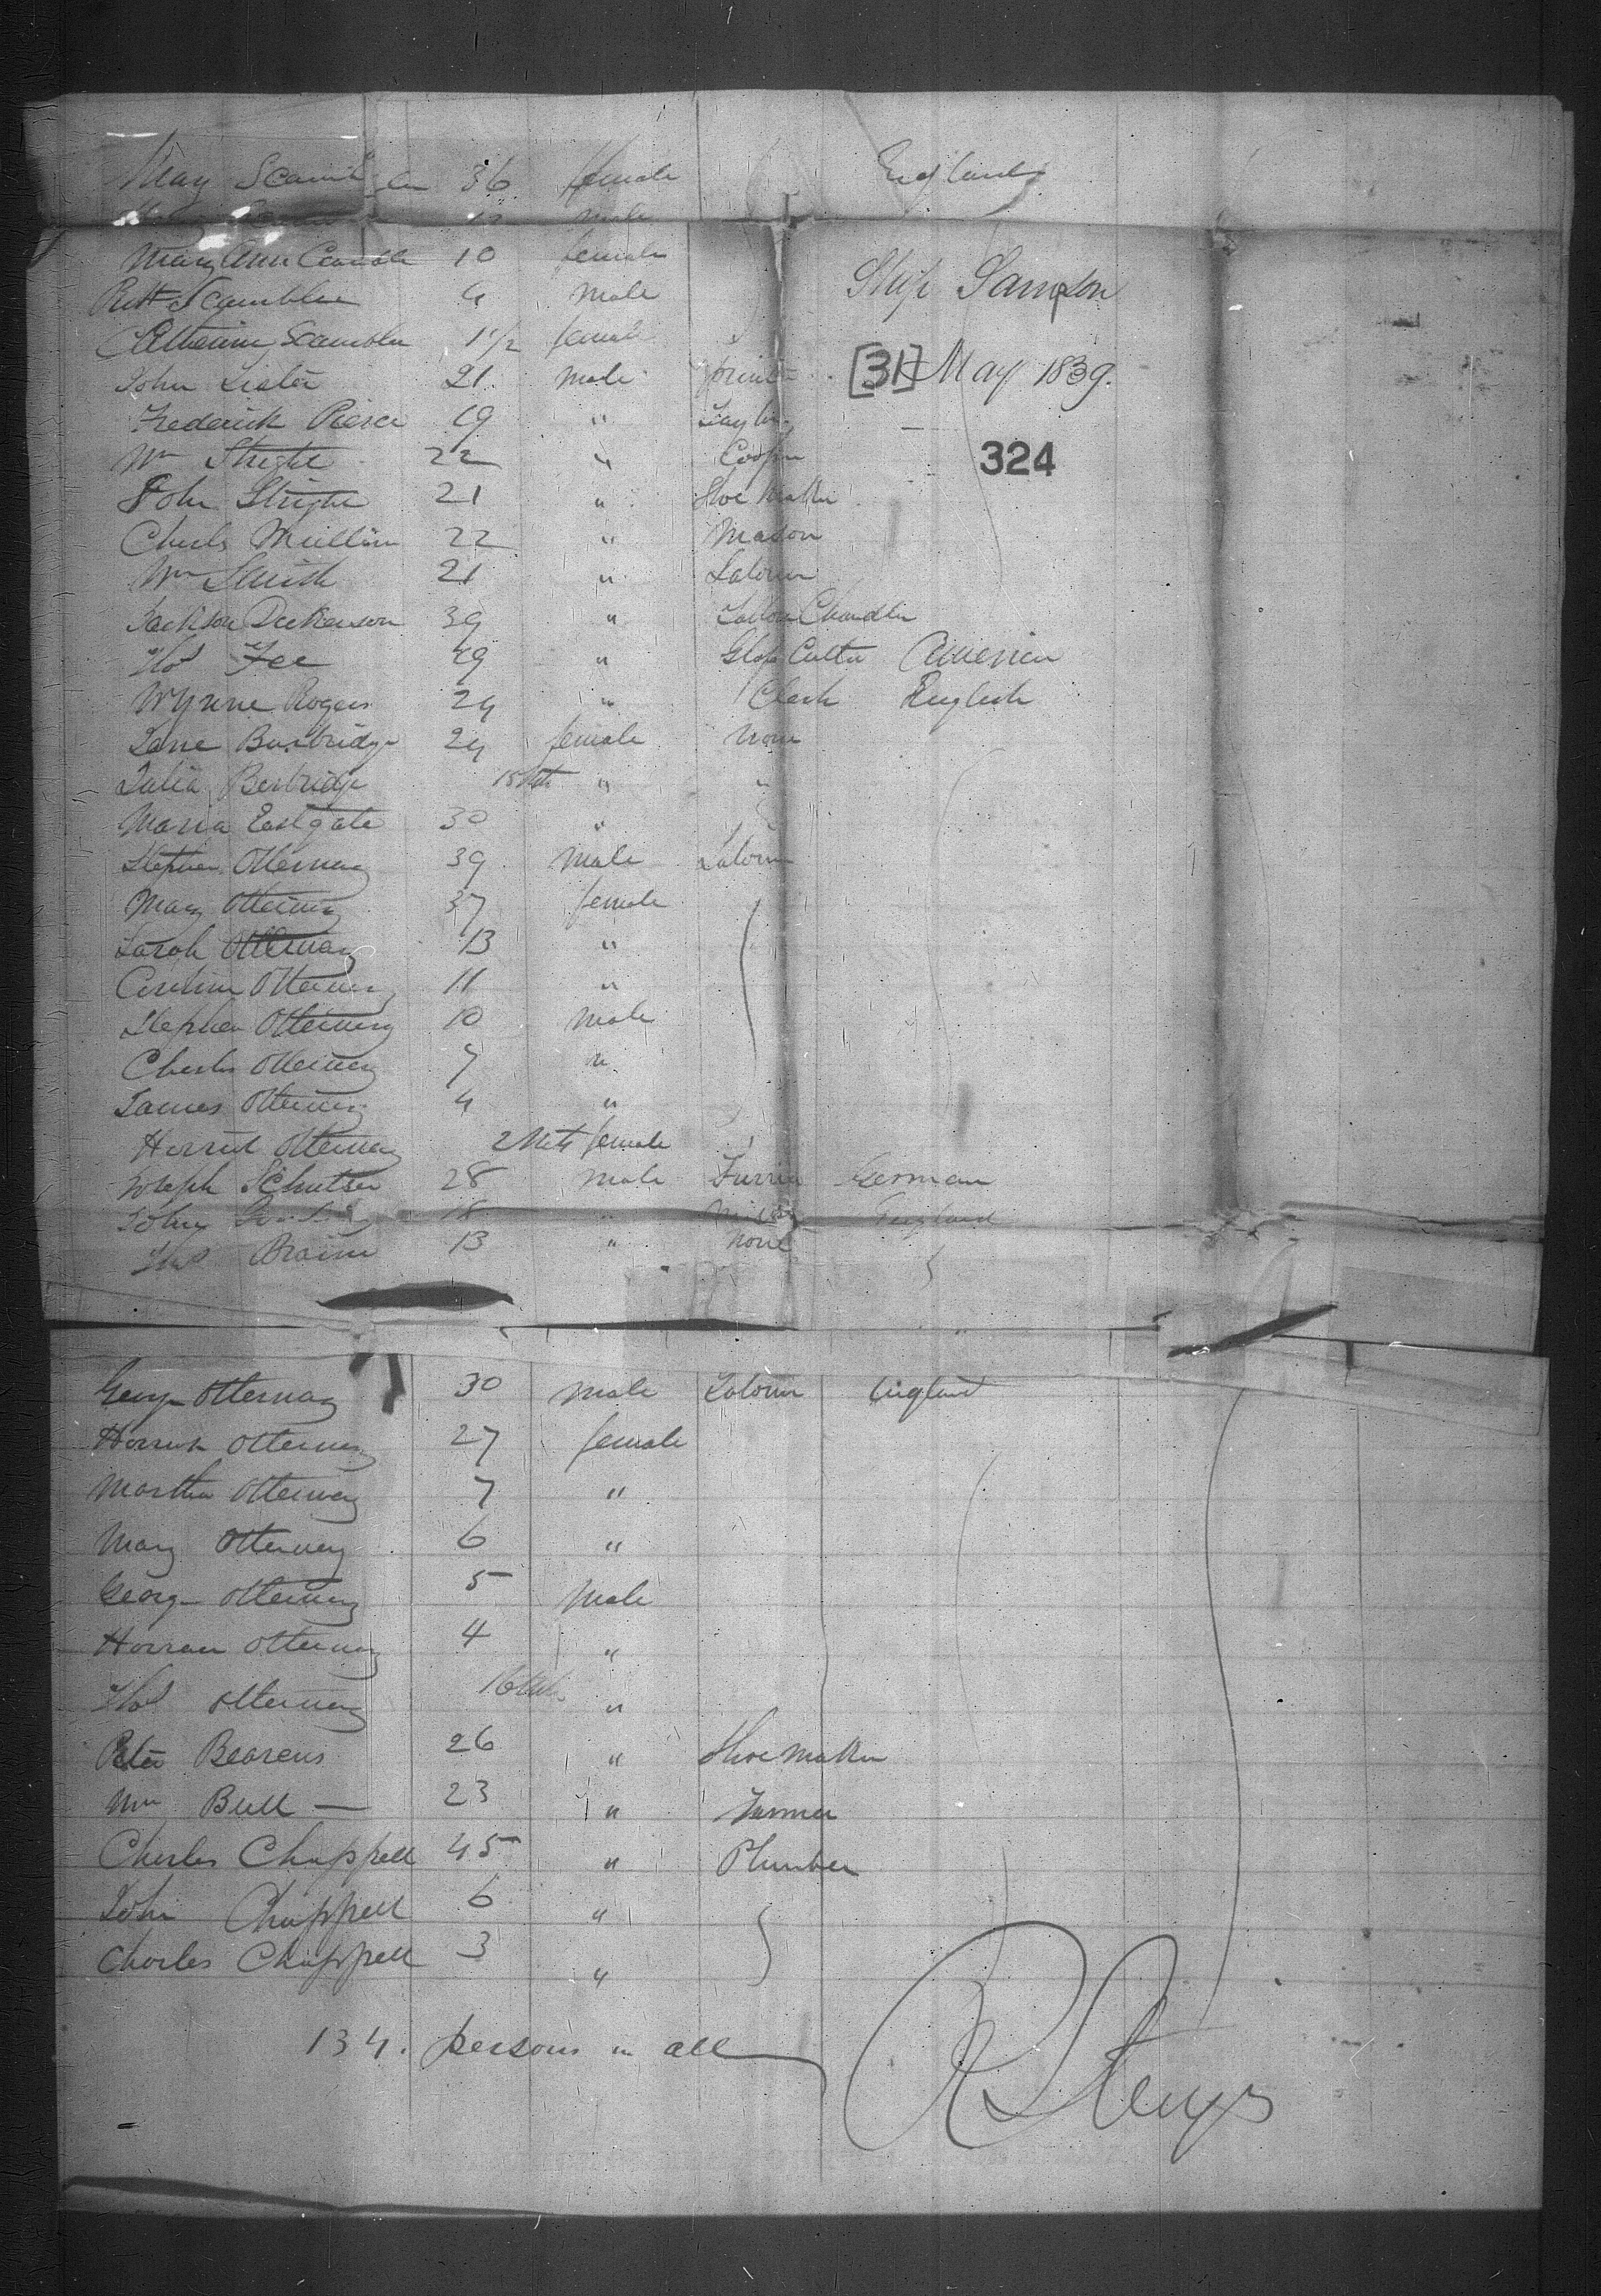 Mary Scambler 36 female England
male
Mary Ann Cambler 10 female
Scambler 4 male
Catherine Scambler 1 1/2 female
Ship Sampson
John Lister 21 male printer
[31] May 1839.
Frederick Pierce 19 " Taylor
Wm Stright 22 " Cooper
324
John Stright 21 " Shoe Maker
Charls Mullin 22 " Mason
Wm Smith 21 " Labour
Jackson Dickenson 39 " Tallow Chandler
Thos Fee 29 " Glass Cutter America
Wynne Rogers 24 " Clerk English
Jane Burbridge 24 female None
Julia Burbridge 18 Mth " "
Maria Eastgate 30 "
Stephen Otterway 39 male Labour
Mary Otterway 37 female
Sarah Otterway 13 "
Caroline Otterway 11 "
Stephen Otterway 10 male
Charls Otterway 7 "
James Otterway 4 "
Harriet Otterway 2 Mth female
Joseph Schutser 28 male Furrier German
John 18 " England
Thos Braim 13 " None
George Otterway 30 male Labour England
Harriet Otterway 27 female
Martha Otterway 7 "
Mary Otterway 6 "
George Otterway 5 Male
Otterway 4 "
Thos Otterway "
Peter Bearens 26 " Shoe Maker
Wm Bull — 23 " Farmer
Charles Chappell 45 " Plumber
John Chappell 6 "
Charles Chappell 3 "
134. persons in all